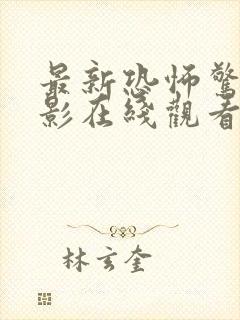 最新恐怖驚
影在綫觀看
林玄奎